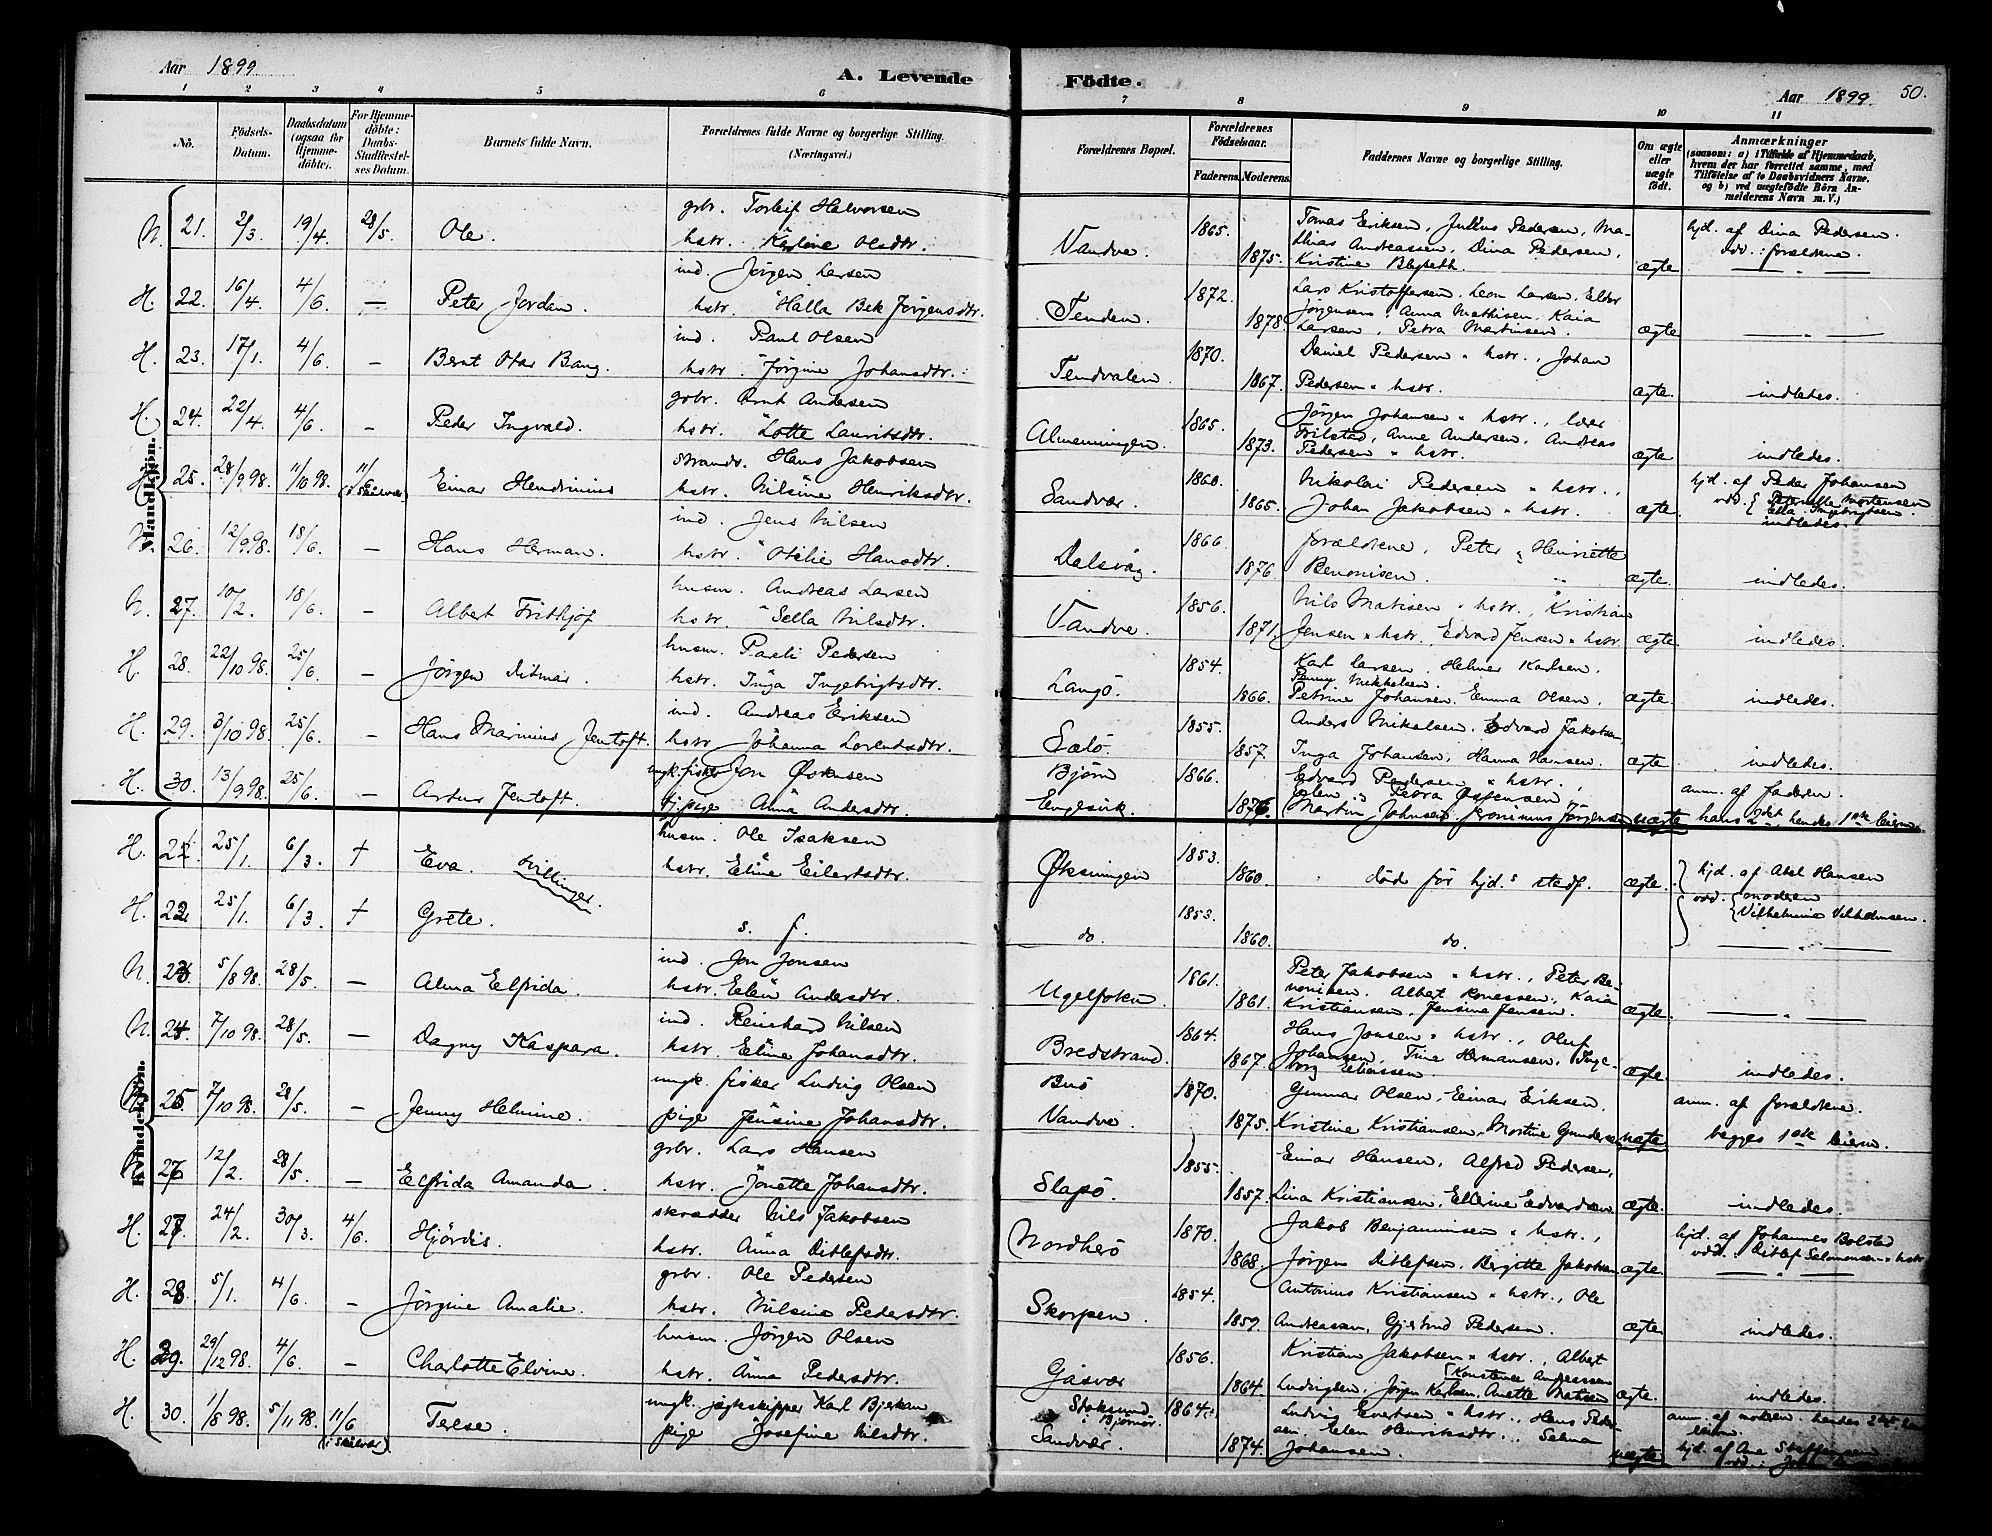 Aar 1899
A. Levende
Födte.
Aar 1899. 50.
1 2 3 4 5 6 7 8 9 10 11
Nö.
Födsels-
Datum.
Daabsdatum
(ogsaa for
Hjemme-
döbte).
For Hjemme-
döbte:
Daabs-
Stadfestel-
ses Datum.
Barnets fulde Navn.
Forældrenes fulde Navne og borgerlige Stilling.
(Næringsvei.)
Forældrenes Bopæl.
Forældrenes
Födselsaar.
Faderens. Moderens.
Faddernes Navne og borgerlige Stilling.
Om ægte
eller
uægte
födt.
Anmærkninger
(saasom: a) i Tilfælde af Hjemmedaab,
hvem der har forrettet samme, med
Tilföielse af to Daabsvidners Navne.
og b) ved uægtefödte Börn An-
melderens Navn m. V.)
Mandkjön.
N. 21. 2/3 19/4. 28/5. Ole. gbr. Torleif Halvorsen
hstr. Karline Olsdtr. Vandve. 1865. 1875. Tomas Eriksen, Julius Pedersen, Ma-
thias Andreassen, Dina Pedersen,
Kristine ægte hjd. af Dina Pedersen.
vdv.: forældrene.
H. 22. 16/4. 4/6 — Peter Jordan. ind. Jørgen Larsen
hstr. Halla Bek Jørgensdtr. Tenden. 1872. 1878 Lars Kristoffersen, Leon Larsen,
Jørgensen, Anna Mathisen, Kaia
Larsen, Petra Martinsen. ægte — " —
H. 23. 17/1. 4/6. — Berat Otar Bang. ind. Paul Olsen
hstr. Jørgine Johansdtr. Tendvalen. 1870. 1867. Daniel Pedersen " hstr., Johan
Pedersen " hstr. ægte. indledes.
H. 24. 22/4. 4/6 — Peder Ingvald. gbr. Arnt Andersen
hstr. Lotte Lauritsdtr. Almenningen. 1865. 1873. Jörgen Johansen " hstr., lærer
Frilstad, Anne Andersen, Andreas
Pedersen " hstr. ægte indledes.
25. 28/9 98. 11/10 98. 11/6 (i Skålvær) Einar Hendrinius strands. Hans Jakobsen
hstr. Nilsine Henriksdtr. Sandvær. 1860. 1865. Nikolai Pedersen " hstr.,
Johan Jakobsen " hstr. ægte. hjd. af Peder Johansen
vdv. { Peternelle Mortensen
Ella Ingebrigtsen
indledes.
26. 12/9 98. 18/6. — Hans Herman. ind. Jens Nilsen
hstr. Otelie Hansdtr. Dalsvåg. 1866. 1876. forældrene, Peter " Henriette
Benonisen. ægte indledes.
N. 27. 10/2. 18/6. — Albert Frithjof husm. Andreas Larsen
hstr. Sella Nilsdtr. Vandve. 1856. 1871. Nils Matisen " hstr., Kristian
Jensen " hstr., Edvard Jensen " hstr ægte indledes.
H. 28. 22/10 98. 25/6. — Jörgen Ditmar. husm. Parli Pedersen
hstr. Inga Ingebrigtsdtr. Langö. 1854. 1866. Karl Larsen, Helmer Karlsen,
Penny Mikkelsen.
Petrine Johansen, Emma Olsen, ægte. indledes.
H. 29. 3/10 98. 25/6. — Hans Marinius Jentoft. ind. Andreas Eriksen
hstr Johanna Lorentsdtr. Sælö. 1855. 1857. Anders Mikalsen, Edvard Jakobsen,
Inga Johansen, Hanna Hansen. ægte. indledes.
H. 30. 13/9 98. 25/6. — Artur Jentoft. ungk. fisker Jon
tj. pige Anna Andersdtr. Bjørn
Engesvik. 1866. 1876. Edvard Pedersen " hstr.,
Petra
Martin Johnsen, Jeronimus Jørgensen uægte anm. af faderen.
hans 2det hendes 1ste leierm.
Kvindekjön.
H. 21. 25/1. 6/3. † Eva. tvillinger. husm. Ole Isaksen
hstr. Eline Eilertsdtr. Øksningen 1853. 1860. död för hjd.s stadf. ægte. hjd. af Abel Hansen
vdv. { moderen
Vilhelmine Vilhelmsen.
H. 22. 25/1. 6/3. † Grete. s. f. do. 1853. 1860. do. — " —
N. 23. 5/8 98. 28/5. — Alma Elfrida. ind. Jon Jonsen
hstr. Elen Andersdtr. 1861. 1861. Peter Jakobsen " hstr., Peter Be-
nonisen, Albert Konessen, Kaia
Kristiansen, Jensine Jensen. ægte. — " —
N. 24. 7/10 98. 28/5. — Dagny Kaspara. ind. Reinhard Nilsen
hstr. Eline Johansdtr. Bredstrand. 1864. 1867. Hans Jonsen " hstr., Oluf
Johansen, Tine Hermansen, Inge-
borg Eliassen ægte. indledes.
25. 7/10 98. 28/5. — Jenny Helmine. ungk. fisker Ludvig Olsen
pige Jensine Johansdtr. Buö
Vandve. 1870. 1875. Gunnar Olsen, Einar Eriksen,
Kristine Kristiansen, Martine uægte anm. af forældrene.
begges 1ste leierm.
26 12/2. 28/5. — Elfrida Amanda. gbr. Lars Hansen
hstr. Jonette Johansdtr. Slapö. 1855. 1857. Einar Hansen, Alfred Pedersen,
Lina Kristiansen, Ellerine Edvardsen ægte. indledes.
H. 27. 24/2. 30/3. 4/6. Hjördis. skrædder Nils Jakobsen
hstr. Anna Ditlefsdtr. Nordherö 1870. 1868. Jakob Benjaminsen " hstr.,
Jørgen Ditlefsen, Bergitte Jakobsen ægte. hjd. af Johannes Bolstad
vdv.: Ditlef Salomonsen " hstr
H. 28 5/1. 4/6. — Jörgine Amalie. gbr. Ole Pedersen
hstr. Nilsine Pedersdtr. Skorpen. 1854. 1859. Antonius Kristiansen " hstr., Ole
Andreassen, Gjertrud Pedersen. ægte. indledes.
H. 29. 29/12 98. 4/6. — Charlotte Elvine. husm. Jørgen Olsen
hstr. Anna Pedersdtr. Gåsvær 1856. 1864. Kristian Jakobsen " hstr., Albert
[Konstanse Andreassen
Ludvigsen, Jörgen Karlsen, Anette Matisen ægte. indledes.
H. 30. 1/8 98. 5/11 98. 11/6 (i Skålvær) Terese. ungk. jægtskipper Karl Bjerkan
pige Josefine Nilsdtr. Stoksund
i Bjørnör.
Sandvær. 1864. 1874. Ludvig Evertsen " hstr., Hans Peder-
sen, Elen Henriksdtr., Selma
Johansen. uægte anm. af moderen. hendes 2det
leierm.
hjd. af Ane Steffensen
vdv.: